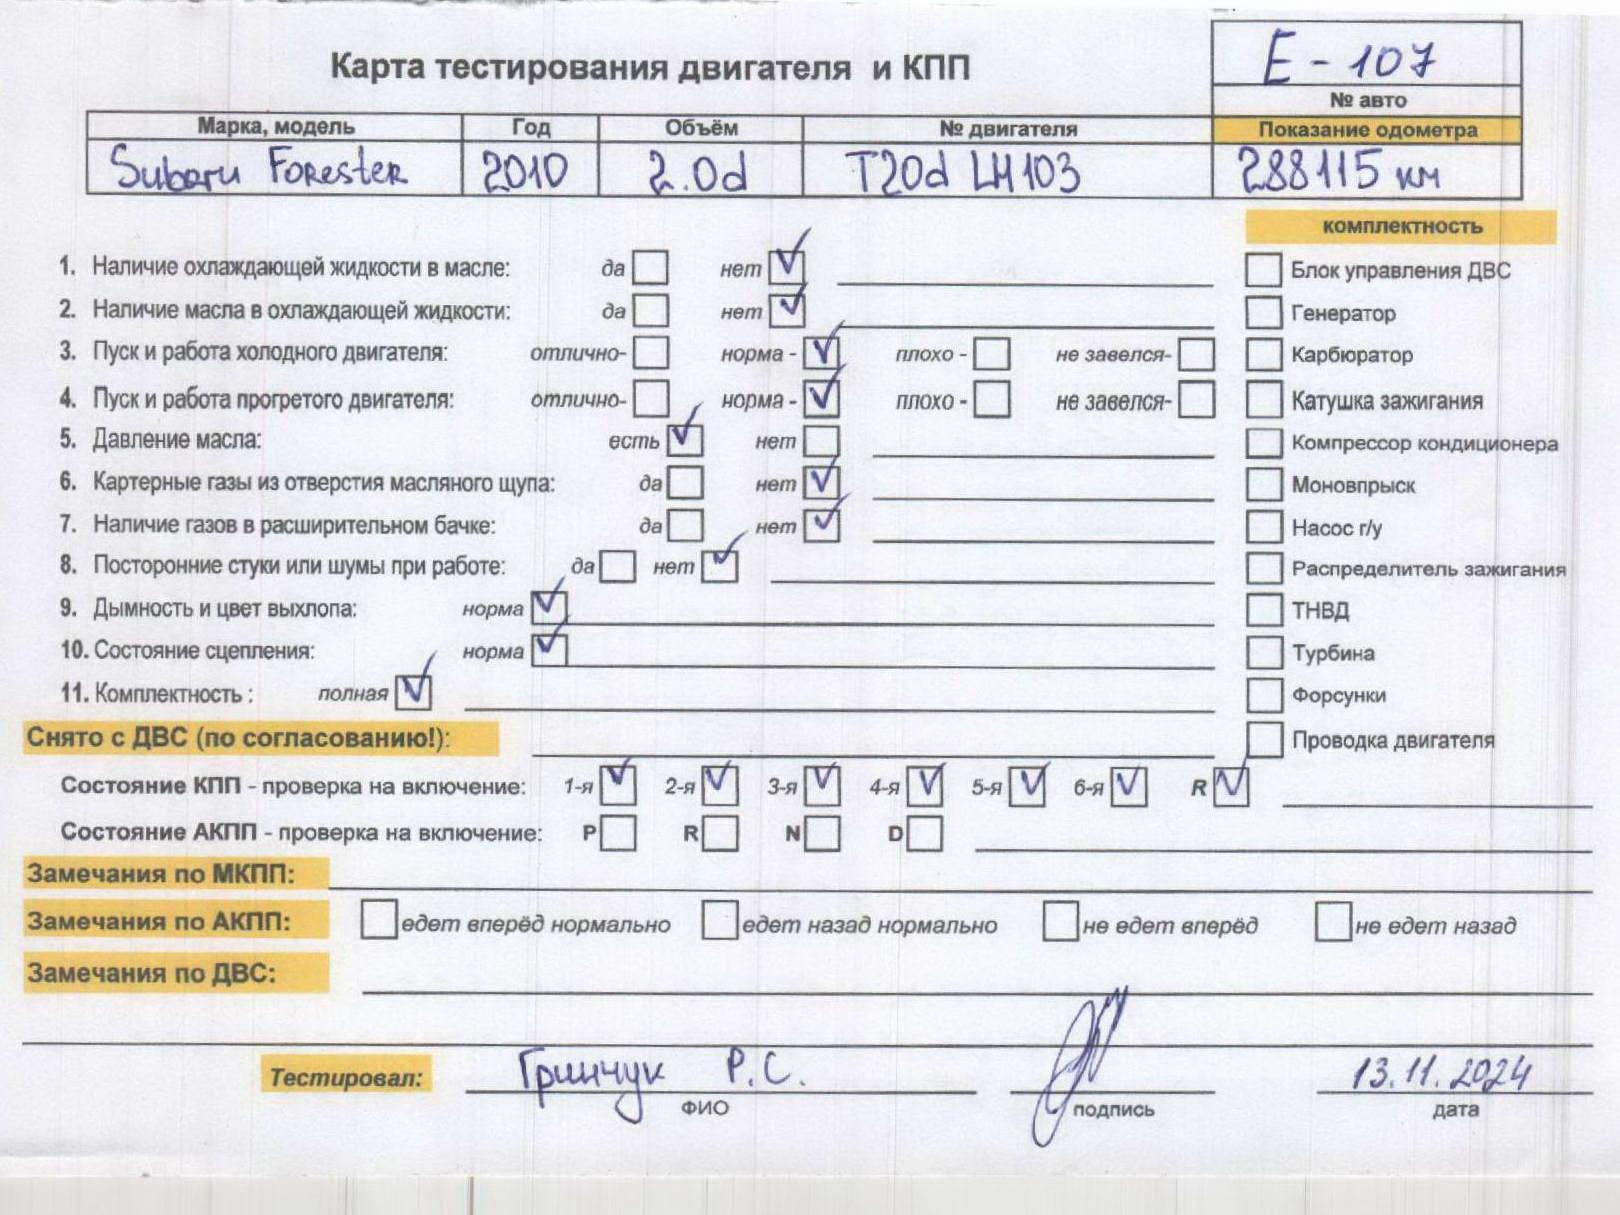 Карта тестирования двигателя и КПП
E-107
№ авто
Марка, модель Год Объём № двигателя Показание одометра
Subaru Forester 2010 2.0d T20d LH103 288115 км
комплектность
1. Наличие охлаждающей жидкости в масле: да нет Блок управления ДВС
2. Наличие масла в охлаждающей жидкости: да нет Генератор
3. Пуск и работа холодного двигателя: отлично- норма - плохо - не завелся- Карбюратор
4. Пуск и работа прогретого двигателя: отлично- норма - плохо - не завелся- Катушка зажигания
5. Давление масла: есть нет Компрессор кондиционера
6. Картерные газы из отверстия масляного щупа: да нет Моновпрыск
7. Наличие газов в расширительном бачке: да нет Насос г/у
8. Посторонние стуки или шумы при работе: да нет Распределитель зажигания
9. Дымность и цвет выхлопа: норма ТНВД
10. Состояние сцепления: норма Турбина
11. Комплектность : полная Форсунки
Снято с ДВС (по согласованию!): Проводка двигателя
Состояние КПП - проверка на включение: 1-я 2-я 3-я 4-я 5-я 6-я R
Состояние АКПП - проверка на включение: P R N D
Замечания по МКПП:
Замечания по АКПП: едет вперёд нормально едет назад нормально не едет вперёд не едет назад
Замечания по ДВС:
Тестировал: Гринчук Р.С. 13.11.2024
ФИО подпись дата